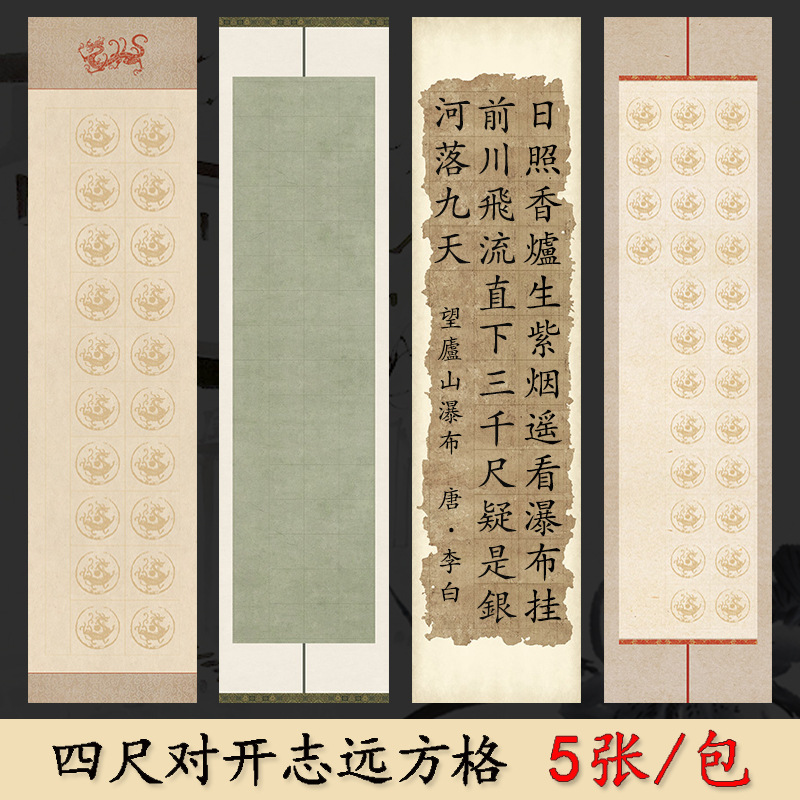 日照香爐生紫烟遥看瀑布挂
前川飛流直下三千尺疑是銀
河落九天
望廬山瀑布 唐·李白
四尺对开志远方格 5张/包